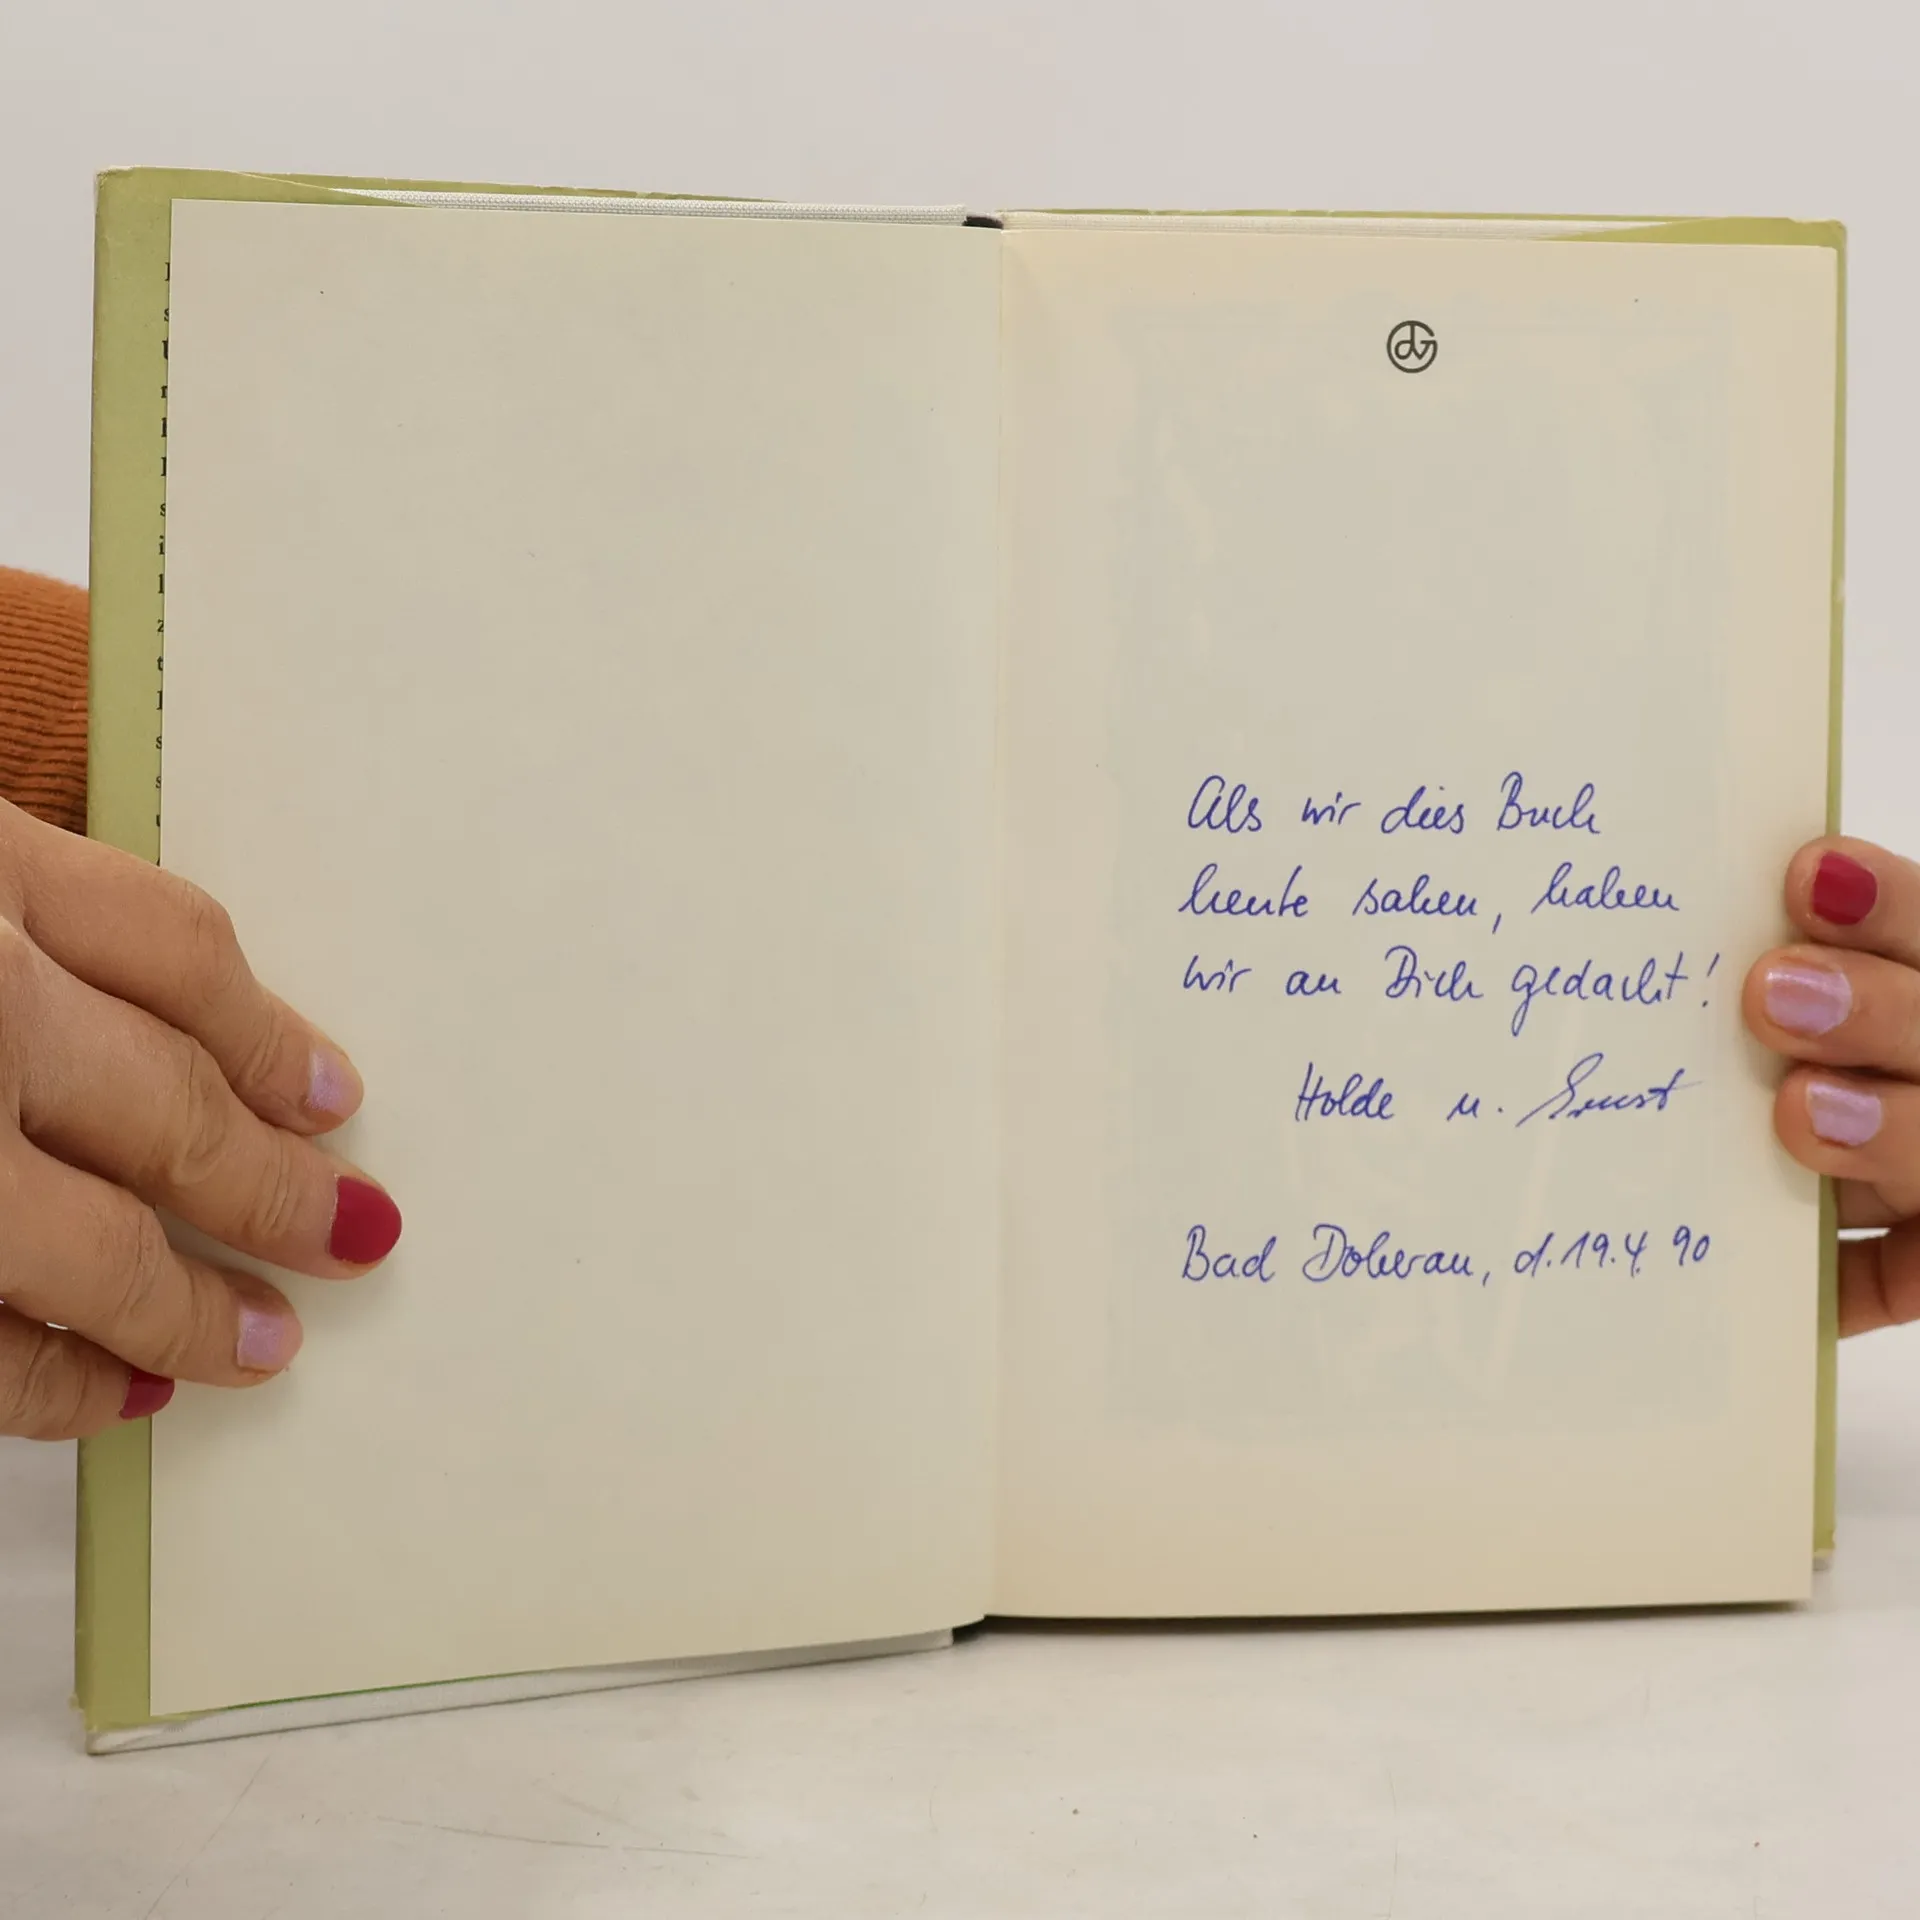 Als wir dies Buch
heute sahen, haben
wir an Dich gedacht!
Holde u. Ernst
Bad Doberan, d. 19.4. 90